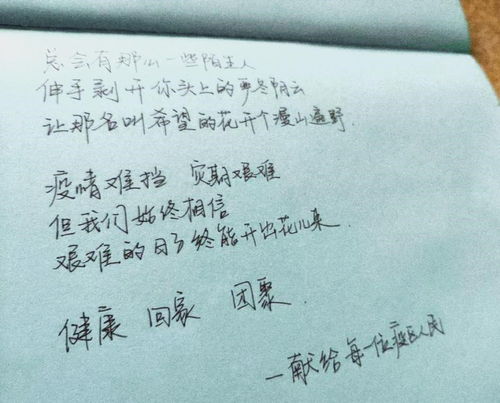 总会有那么一些陌生人
伸手剥开你头上的严冬阴云
让那名叫希望的花开个漫山遍野.
疫情难挡 灾期艰难
但我们始终相信
艰难的日子终能开出花儿来.
健康 回家 团聚.
—献给每一位疫区人民